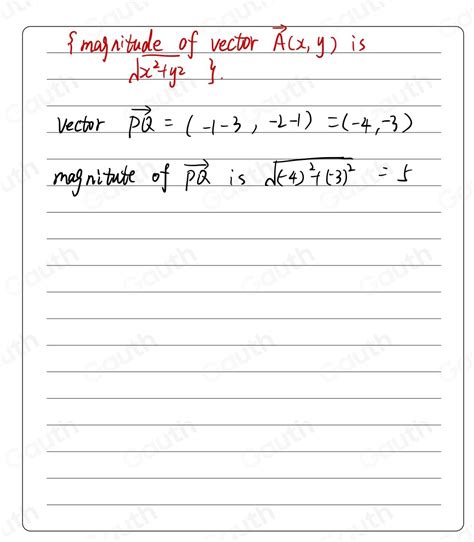 { magnitude of vector A⃗(x, y) is
√x²+y² }.
vector PQ⃗ = ( -1-3 , -2-1) = (-4, -3)
magnitute of PQ⃗ is √(-4)²+(-3)² = 5